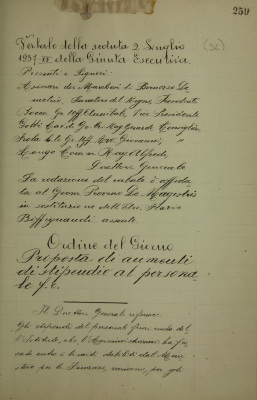 259
Verbale della seduta 2 Luglio (32)
1937-XV della Giunta Esecutiva.
Presenti i Signori:
Asinari dei Marchesi di Bernezzo De-
metrio, Senatore del Regno, Presidente
Gr. Uff. Annibale, Vice Presidente
Gotti Gr. Cr. Rag. Consigliere,
Gr. Uff. Avv. Giovanni, "
Longo Comm. Rag. Alfredo,
Direttore Generale
La redazione del verbale è affida-
ta al Geom. De Magistris
in sostituzione dell'Avv.
assente.
Ordine del Giorno
Proposta di aumenti
di stipendio al persona-
le f. r.
Il Direttore Generale riferisce:
Gli stipendi del personale fuori ruolo del-
l'Istituto, che l'Amministrazione ha
entro i limiti stabiliti dal Mini-
stero per le Finanze, vennero, per gli